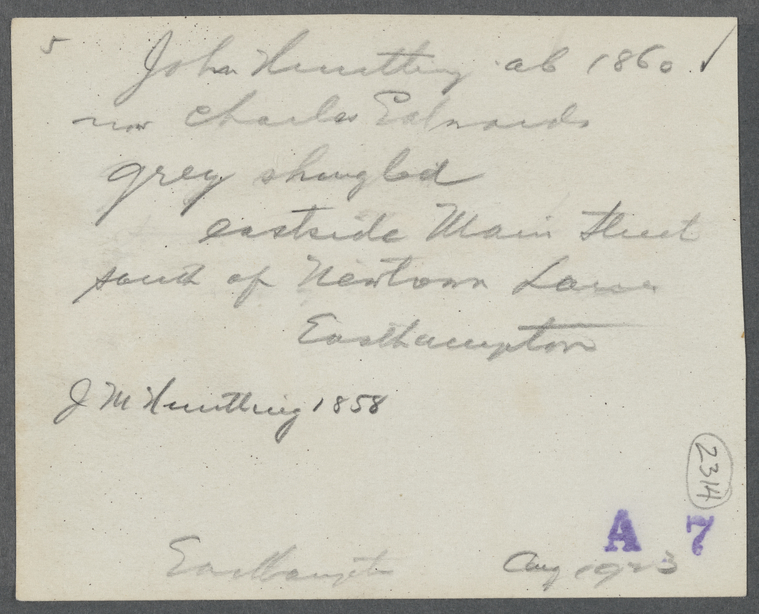 5
John Huntting ab 1860 ✓
now Charles Edwards
grey shingled
eastside Main Street
south of Newtown Lane
Easthampton
J M Huntting 1858
2314
A 7
Easthampton Aug 1923